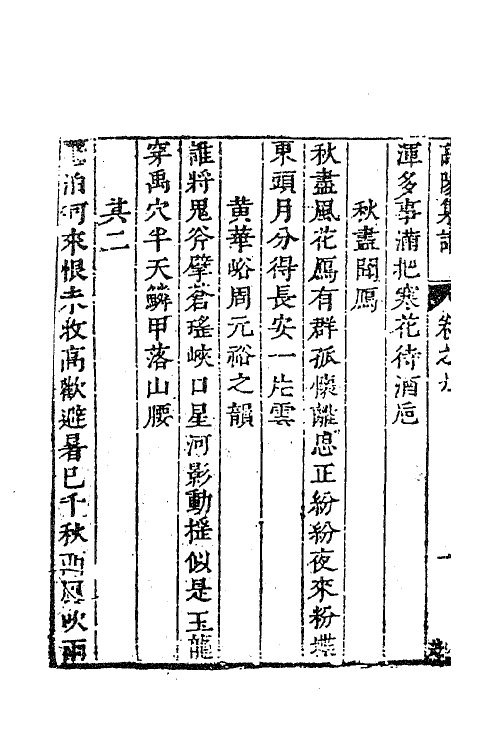 卷之九
渾多事滿把寒花待酒卮
秋盡聞鴈
秋盡風花鴈有群孤懷離思正紛紛夜來粉堞
東頭月分得長安一片雲
黄華峪周元裕之韻
誰將鬼斧擘蒼瑤峽口星河影動搖似是玉龍
穿禹穴半天鱗甲落山腰
其二
泊何來恨未收高歡避暑已千秋西風吹雨